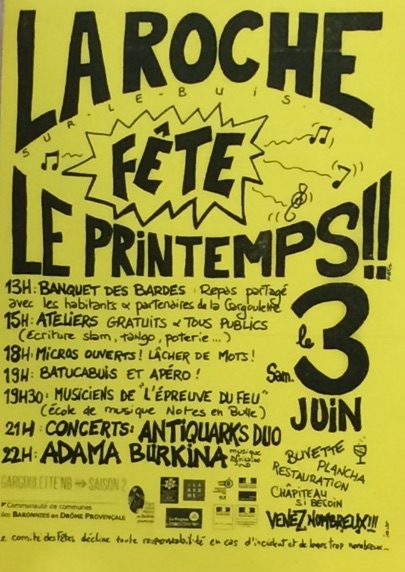 LA ROCHE
SUR-LE-BUIS
FÊTE
LE PRINTEMPS!!
13H: BANQUET DES BARDES: Repas partagé
avec les habitants & partenaires de la Gargoulette
15H: ATELIERS GRATUITS & TOUS PUBLICS
(écriture slam, tango, poterie...)
18H: MICROS OUVERTS! LÂCHER DE MOTS!
19H: BATUCABUIS ET APÉRO!
19H30: MUSICIENS DE "L'ÉPREUVE DU FEU"
(École de musique Notes en Bulle)
21H: CONCERTS: ANTIQUARKS DUO
22H: ADAMA BURKINA
musique
Sam. le 3
JUIN
BUVETTE
PLANCHA
RESTAURATION
CHÂPITEAU
SI BESOIN
VENEZ NOMBREUX!!!
GARGOULETTE'NB → SAISON 2
Communauté de communes
des BARONNIES EN DRÔME PROVENÇALE
La Région
Le comité des fêtes décline toute responsabilité en cas d'incident et de